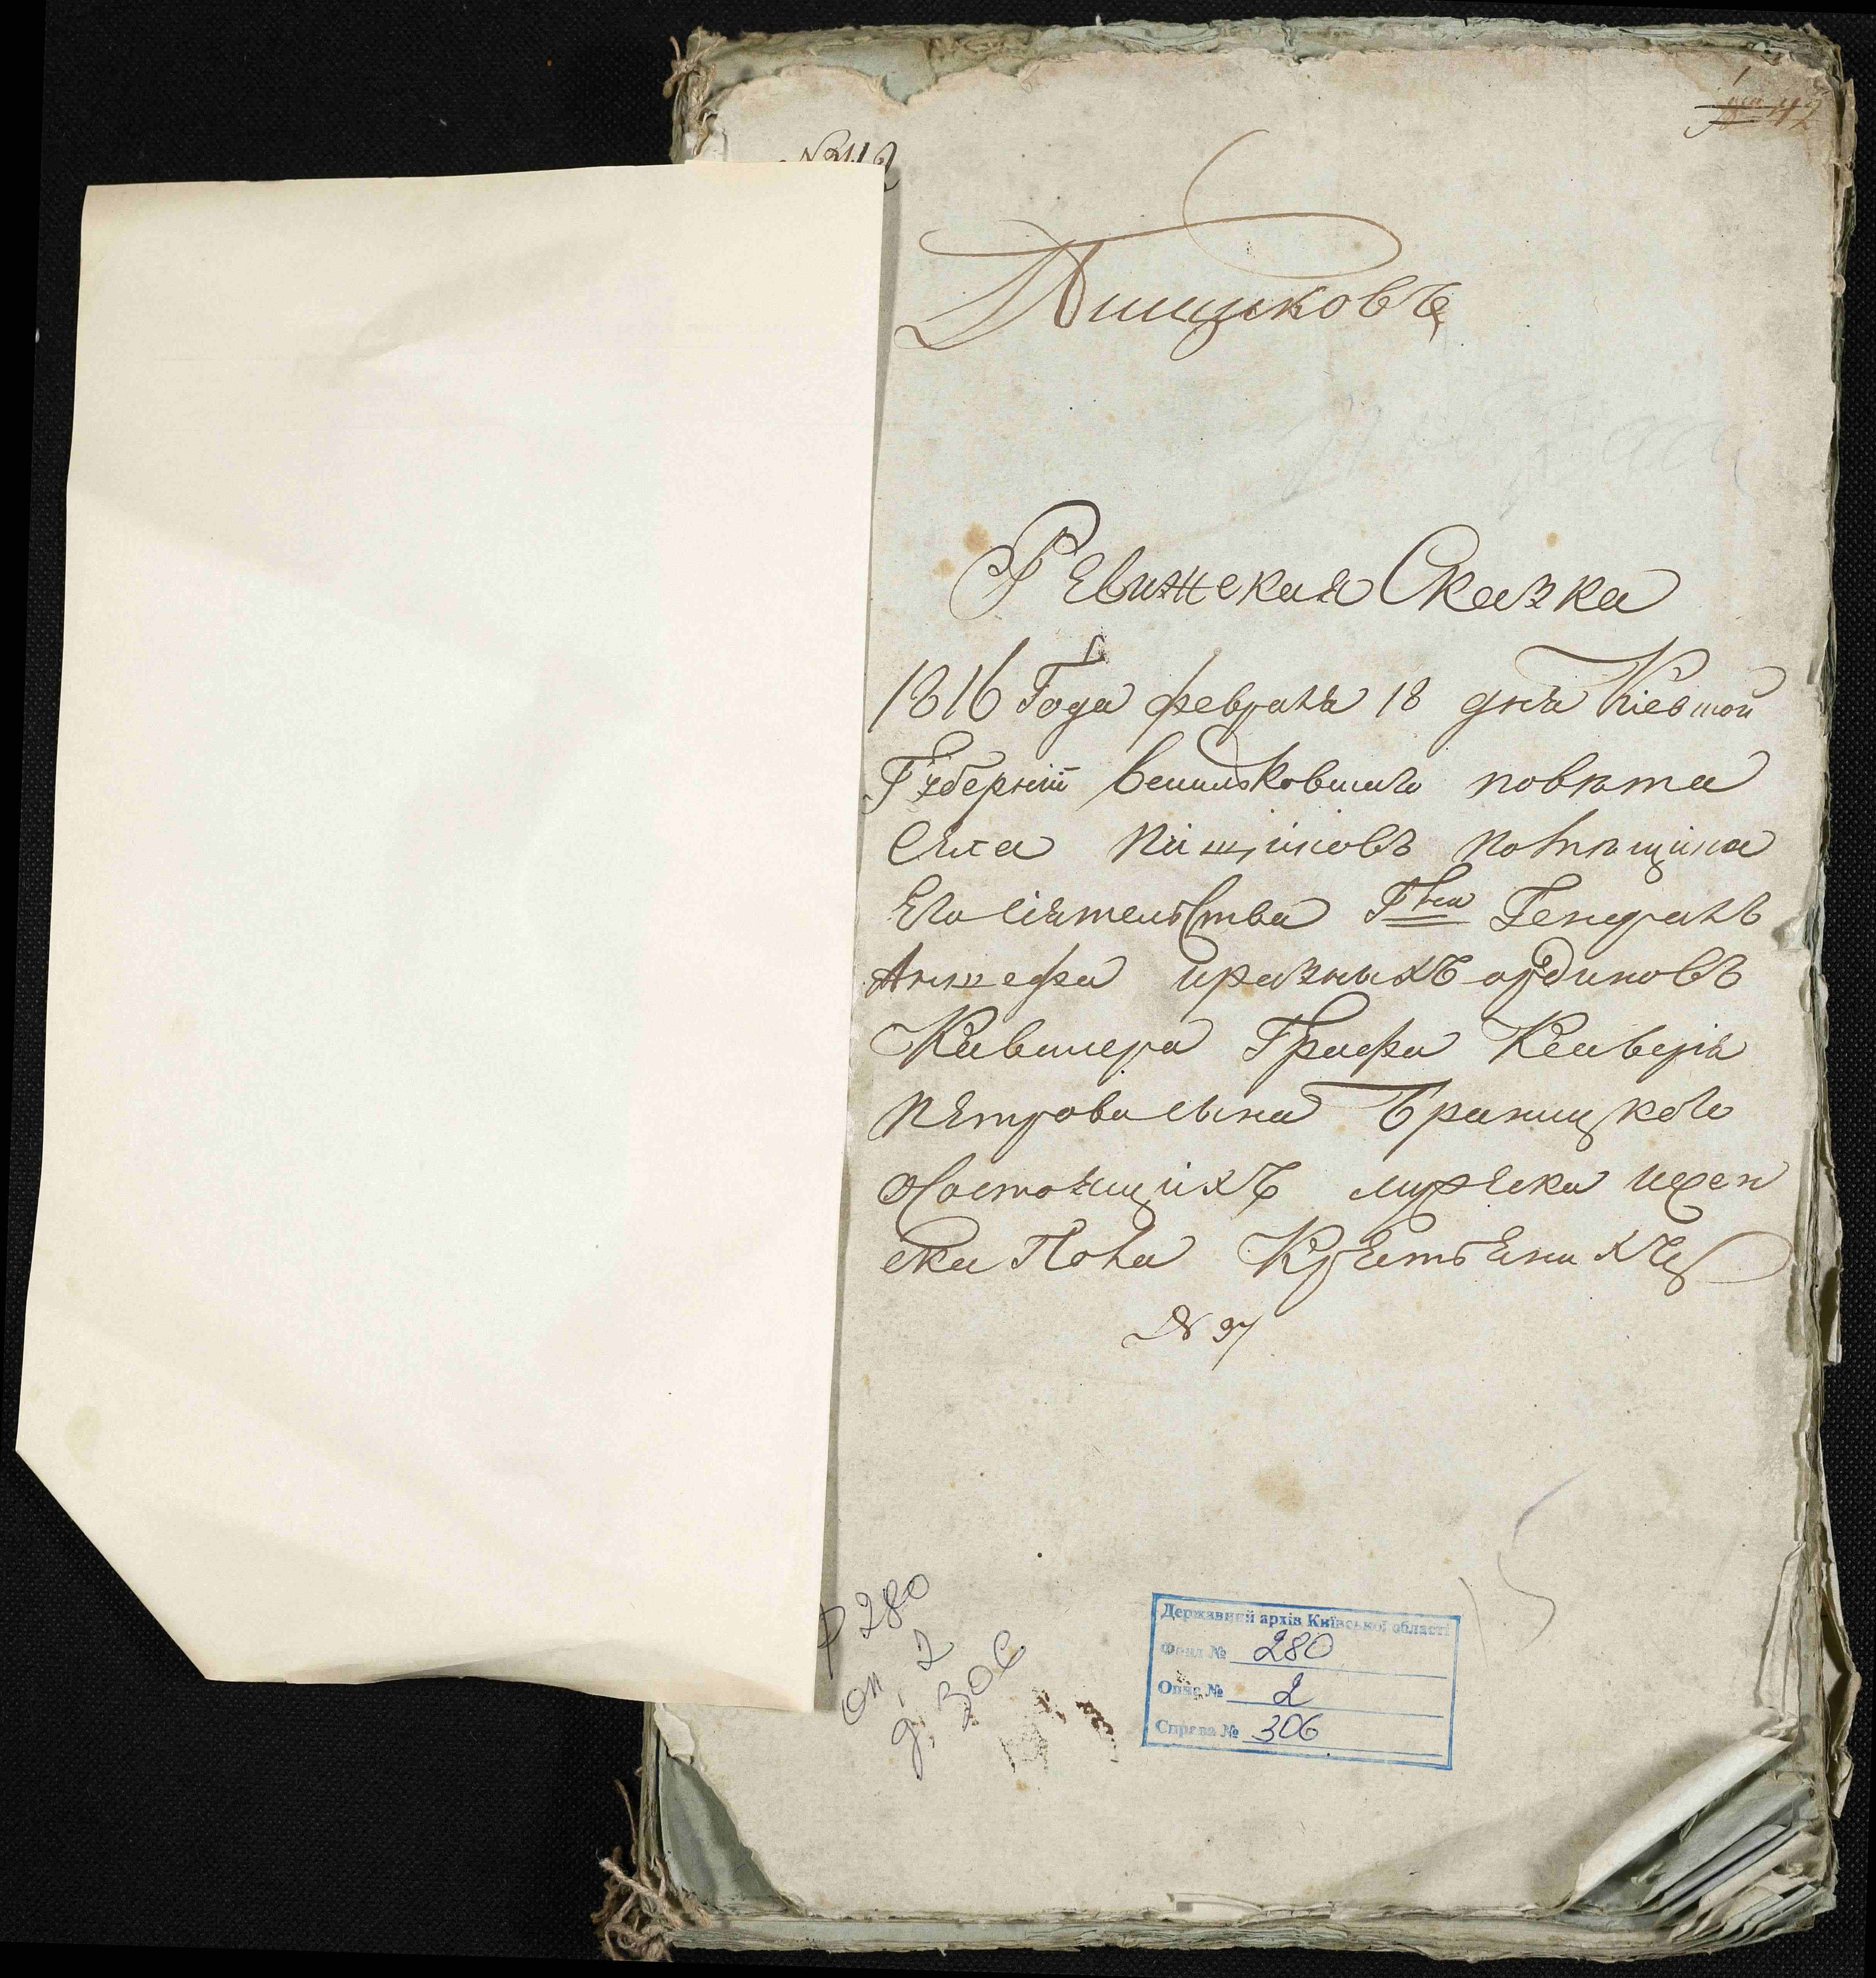 № 112
Пищиковъ
Ревижская Сказка
1816 Года февраля 18 дня Кіевшой
Губерніи васильковшаго повѣта
Села Піщіковъ потѣщика
Его Сіятельства Гдна Генералъ
Аншефа иразныхъ ординовъ
Кавалера Графа Ксаверія
Петрова сына Браницкого
осостоящихъ мужеска ижен
ска Пола Крестьянахъ
№ 37
280
оп. 2
д. 306
Державний архів Київської області
Фонд № 280
Опис № 2
Справа № 306